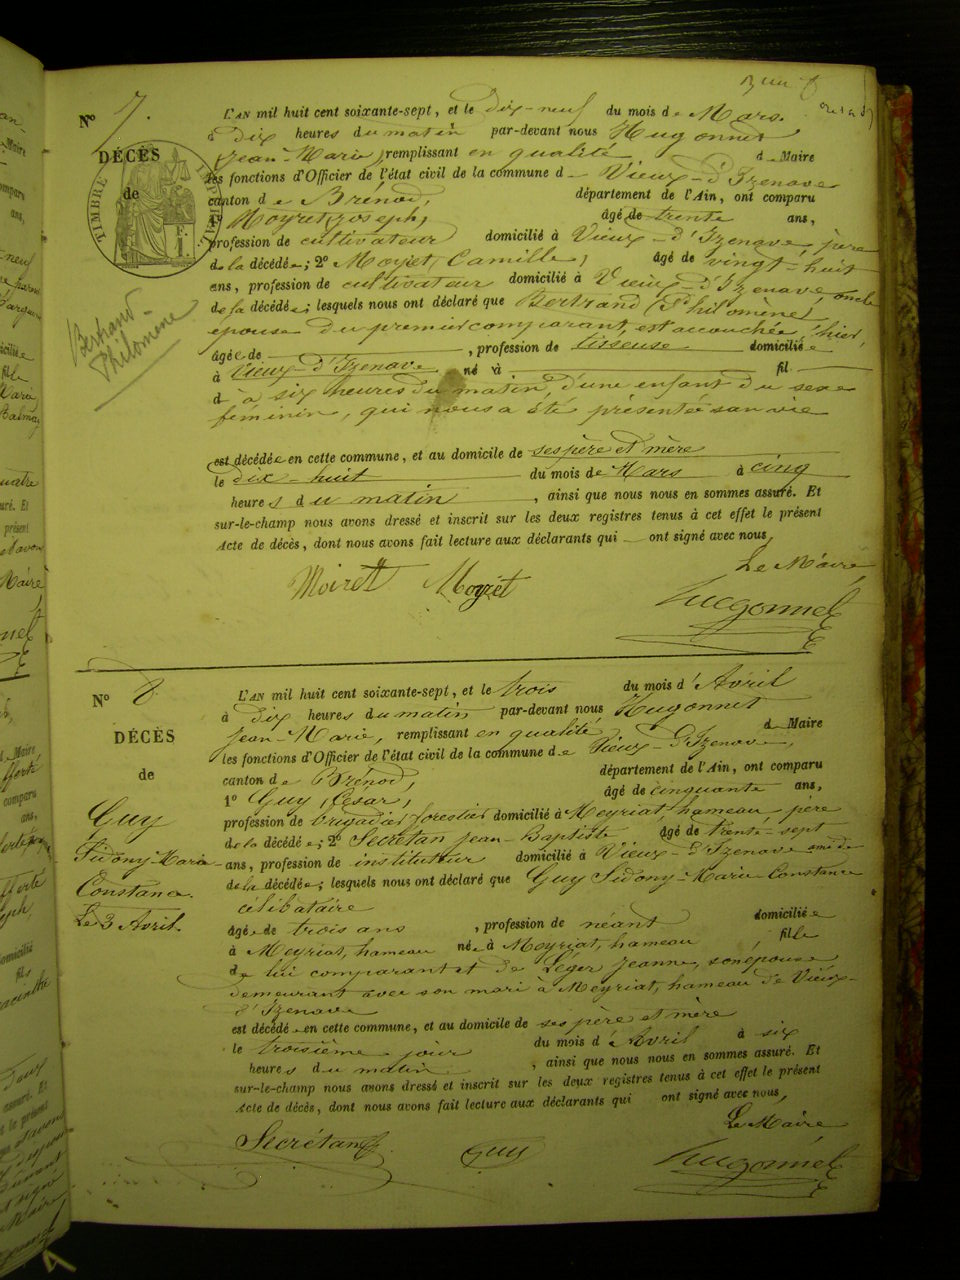 Nº 7.
L'AN mil huit cent soixante-sept, et le dix-neuf du mois de Mars.
à dix heures du matin par-devant nous Hugonnet
Jean-Marie, remplissant en qualité de Maire
les fonctions d'Officier de l'état civil de la commune de Vieux-d'Izenave
canton de Brénod, département de l'Ain, ont comparu
1º Moyret (Joseph) âgé de trente ans,
profession de cultivateur domicilié à Vieux-d'Izenave, père
de la décédée; 2º Moyret, Camille, âgé de vingt-huit
ans, profession de cultivateur domicilié à Vieux-d'Izenave, oncle
de la décédée; lesquels nous ont déclaré que Bertrand (Philomène)
épouse du premier comparant, est accouchée, hier,
âgée de , profession de tisseuse domiciliée
à Vieux-d'Izenave né à fil
d à six heures du matin, d'une enfant du sexe
féminin, qui nous a été présentée sans vie
est décédée en cette commune, et au domicile de ses père et mère
le dix-huit du mois de Mars à cinq
heures du matin, ainsi que nous nous en sommes assuré. Et
sur-le-champ nous avons dressé et inscrit sur les deux registres tenus à cet effet le présent
Acte de décès, dont nous avons fait lecture aux déclarants qui ont signé avec nous,
Le Maire,
Moirett Moyret
Hugonnet
DÉCÈS
de
TIMBRE IMPÉRIAL
Bertrand-
Philomène
Nº 8.
DÉCÈS
de
Guy
Sidony-Marie-
Constance.
Le 3 Avril.
L'AN mil huit cent soixante-sept, et le trois du mois d'Avril
à dix heures du matin par-devant nous Hugonnet
Jean-Marie, remplissant en qualité de Maire
les fonctions d'Officier de l'état civil de la commune de Vieux-d'Izenave,
canton de Brénod, département de l'Ain, ont comparu
1º Guy (César), âgé de cinquante ans,
profession de brigadier forestier domicilié à Meyriat, hameau, père
de la décédée; 2º Secrétan Jean-Baptiste âgé de trente-sept
ans, profession de instituteur domicilié à Vieux-d'Izenave ami de
de la décédée; lesquels nous ont déclaré que Guy Sidony-Marie Constance
célibataire
âgée de trois ans , profession de néant domiciliée
à Meyriat, hameau née à Meyriat, hameau , fille
de lui comparant et de Léger Jeanne, son épouse
demeurant avec son mari à Meyriat, hameau de Vieux-
d'Izenave
est décédée en cette commune, et au domicile de ses père et mère
le troisième jour du mois d'Avril à six
heures du matin , ainsi que nous nous en sommes assuré. Et
sur-le-champ nous avons dressé et inscrit sur les deux registres tenus à cet effet le présent
Acte de décès, dont nous avons fait lecture aux déclarants qui ont signé avec nous,
Le Maire
Secrétan Guy
Hugonnet